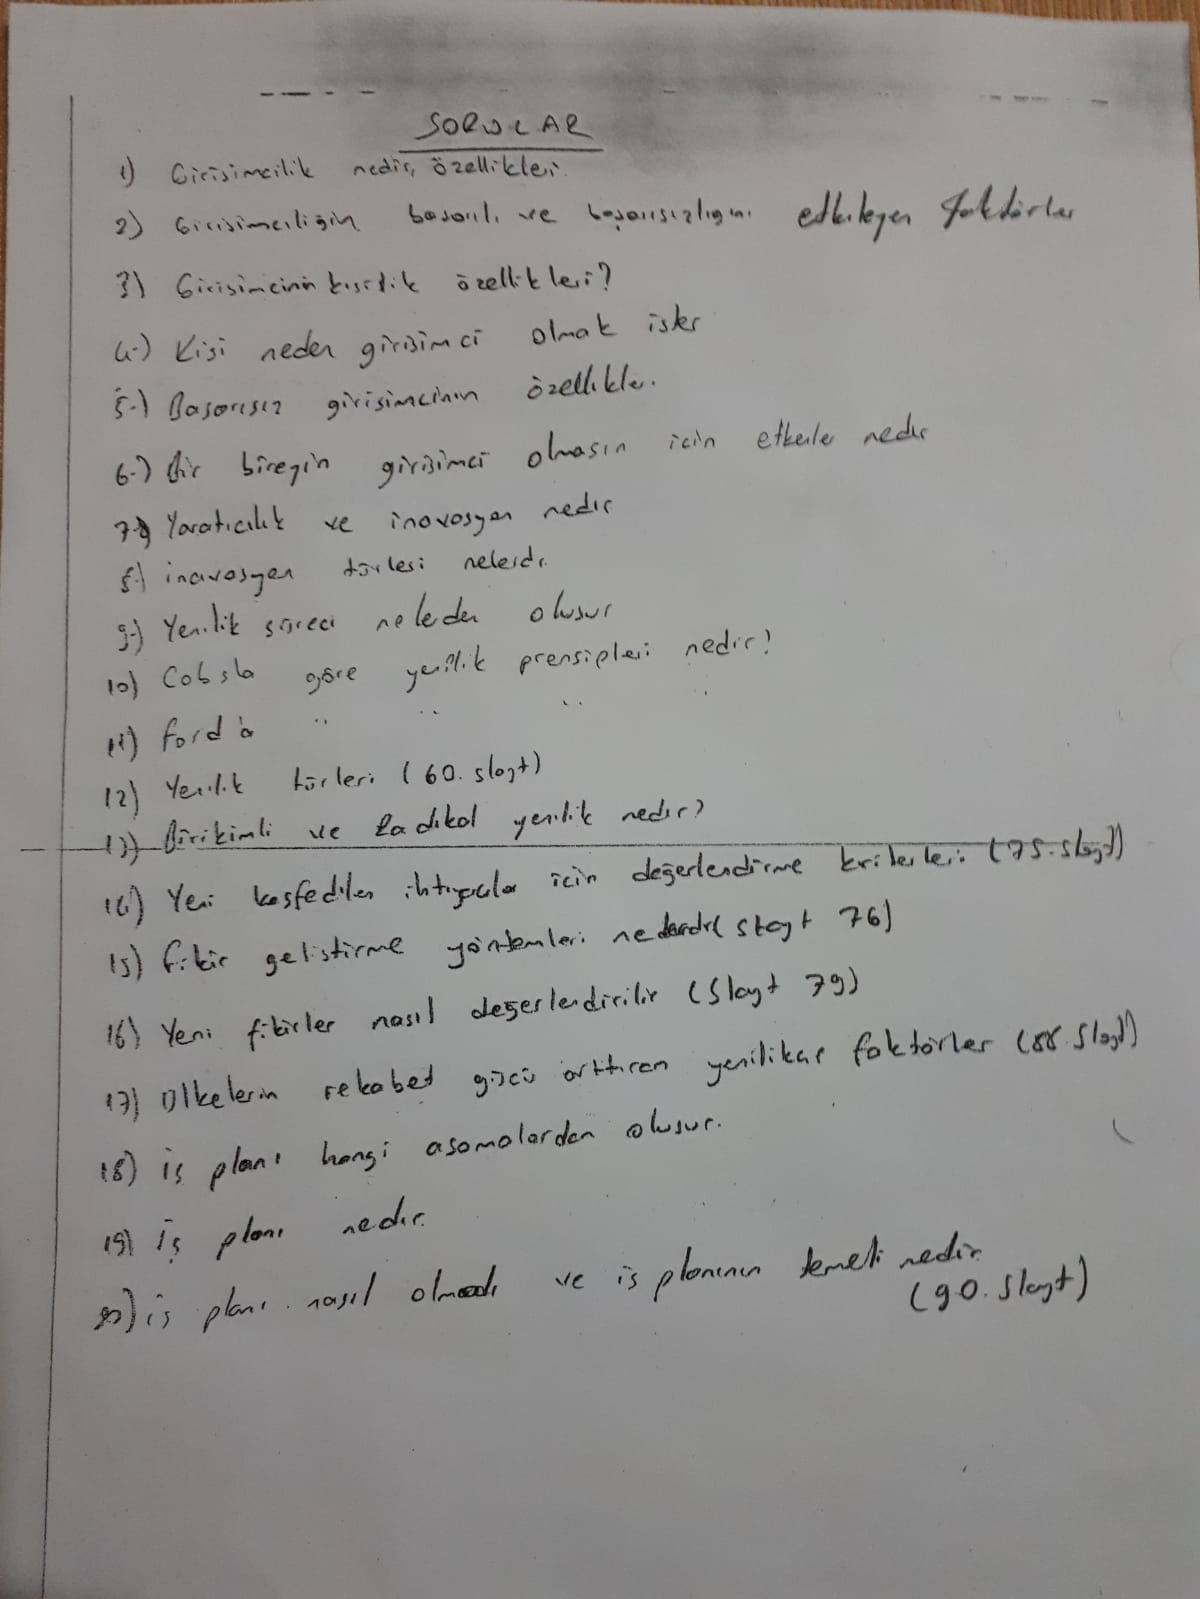 SORULAR
1) Girişimcilik nedir, özellikleri
2) Girişimciliğin başarılı ve başarısızlığını etkileyen faktörler
3) Girişimcinin kişilik özellikleri?
4-) Kişi neden girişimci olmak ister
5-) Başarısız girişimcinin özellikleri.
6-) Bir bireyin girişimci olmasın için etkenler nedir
7-) Yaratıcılık ve inovasyon nedir
8-) inavasyon türleri nelerdir.
9-) Yenilik süreci neleden oluşur
10) Cobsla göre yenilik prensipleri nedir?
11) Ford'a " " "
12) Yenilik türleri (60. slayt)
13) Birikimli ve Radikal yenilik nedir?
14) Yeni keşfedilen ihtiyaçlar için değerlendirme kriterleri (75. slayt)
15) fikir geliştirme yöntemleri nelerdir (slayt 76)
16) Yeni fikirler nasıl değerlendirilir (Slayt 79)
17) Ülkelerin rekabet gücü arttıran yenilikçi faktörler (88. Slayt)
18) iş planı hangi aşamalardan oluşur.
19) iş planı nedir.
20) iş planı nasıl olmalı ve iş planının temeli nedir.
(90. Slayt)